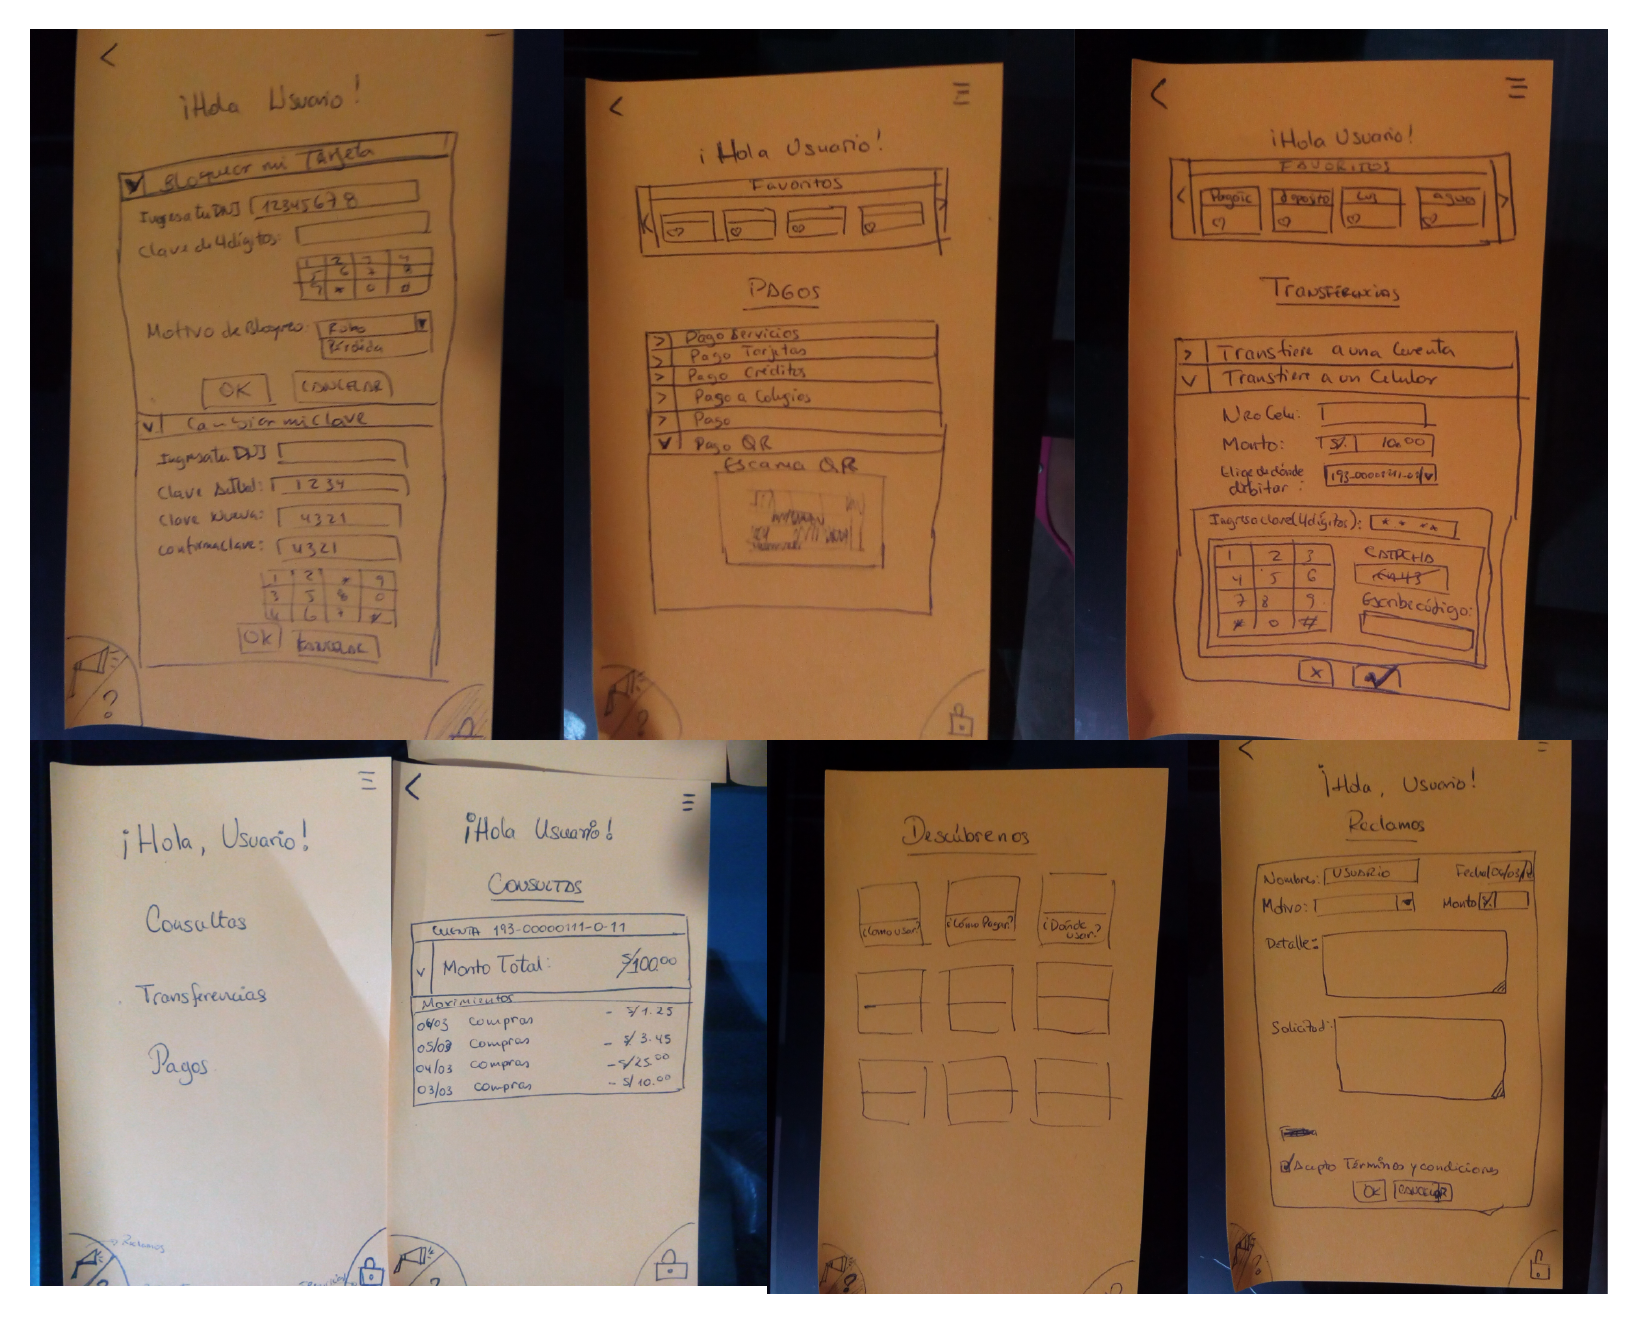 <
¡Hola Usuario!
v Bloquear mi Tarjeta
Ingresa tu DNI 12345678
Clave de 4 dígitos:
1 2 3 4
5 6 7 8
9 * 0
Motivo de Bloqueo: Robo
Pérdida
OK CANCELAR
v Cambiar mi clave
Ingresa tu DNI
Clave Actual: 1234
Clave Nueva: 4321
Confirma clave: 4321
1 2 * 9
3 5 8 0
4 6 7 *
OK CANCELAR
?
<
¡Hola Usuario!
Favoritos
< >
PAGOS
> Pago Servicios
> Pago Tarjetas
> Pago Créditos
> Pago a Colegios
> Pago
v Pago QR
Escanea QR
?
<
¡Hola Usuario!
FAVORITOS
< deposito Luz agua >
Transferencias
> Transfiere a una Cuenta
v Transfiere a un Celular
Nro Celu:
Monto: S/. 10.00
Elige de dónde
debitar:
Ingresa clave (4 dígitos): * * * *
1 2 3
4 5 6
7 8 9
* 0 #
CATPCHA
Escribe código:
x
¡Hola, Usuario!
Consultas
Transferencias
Pagos
Reclamos
?
<
¡Hola Usuario!
CONSULTAS
CUENTA 193-00000111-0-11
v Monto Total: S/100.00
Movimientos
06/03 compras - S/1.25
05/03 compras - S/ 3.45
04/03 compras - S/25.00
03/03 compras - S/ 10.00
?
Descúbrenos
¿Cómo usar? ¿Cómo Pagar? ¿Dónde
usar?
?
<
¡Hola, Usuario!
Reclamos
Nombres: USUARIO
Motivo: Monto S/.
Detalle:
Solicitud:
Acepto Términos y condiciones
OK CANCELAR
?